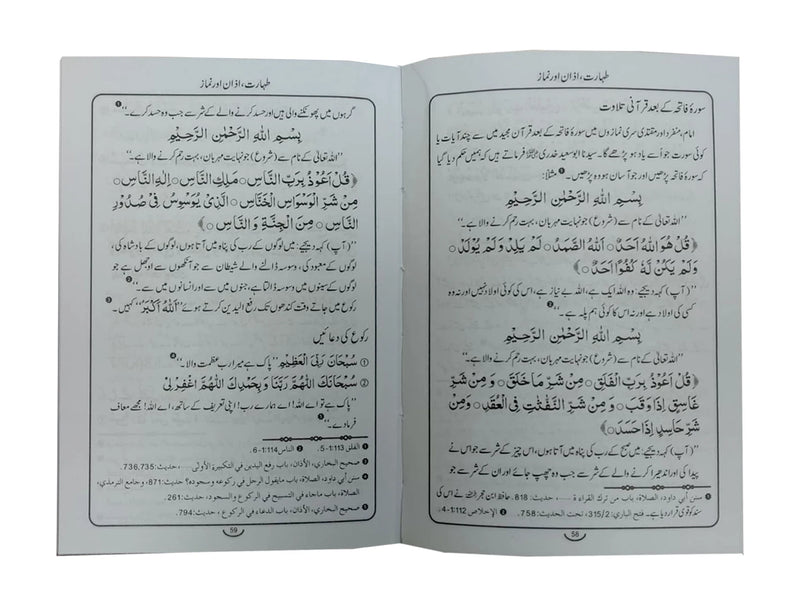 طہارت، اذان اور نماز
سورۂ فاتحہ کے بعد قرآنی تلاوت
امام، منفرد اور مقتدی سری نمازوں میں سورۂ فاتحہ کے بعد قرآن مجید میں سے چند آیات یا
کوئی سورت جو اُسے یاد ہو پڑھے گا۔ سیدنا ابوسعید خدری ؓ فرماتے ہیں کہ ہمیں حکم دیا گیا
کہ سورۂ فاتحہ پڑھیں اور جو آسان ہو وہ پڑھیں۔ ❶ مثلاً:
بِسْمِ اللهِ الرَّحْمٰنِ الرَّحِيْمِ
’’اللہ تعالیٰ کے نام سے (شروع) جو نہایت مہربان، بہت رحم کرنے والا ہے۔‘‘
﴿قُلْ هُوَ اللهُ اَحَدٌ ○ اَللهُ الصَّمَدُ ○ لَمْ يَلِدْ وَلَمْ يُوْلَدْ ○
وَلَمْ يَكُنْ لَّهٗ كُفُوًا اَحَدٌ ○﴾
’’(آپ) کہہ دیجیے: وہ اللہ ایک ہے، اللہ بے نیاز ہے، اس کی کوئی اولاد نہیں اور نہ وہ
کسی کی اولاد ہے اور نہ اس کا کوئی ہم پلہ ہے۔‘‘ ❷
بِسْمِ اللهِ الرَّحْمٰنِ الرَّحِيْمِ
’’اللہ تعالیٰ کے نام سے (شروع) جو نہایت مہربان، بہت رحم کرنے والا ہے۔‘‘
﴿قُلْ اَعُوْذُ بِرَبِّ الْفَلَقِ ○ مِنْ شَرِّ مَا خَلَقَ ○ وَمِنْ شَرِّ
غَاسِقٍ اِذَا وَقَبَ ○ وَمِنْ شَرِّ النَّفّٰثٰتِ فِی الْعُقَدِ ○ وَمِنْ
شَرِّ حَاسِدٍ اِذَا حَسَدَ ○﴾
’’(آپ) کہہ دیجیے: میں صبح کے رب کی پناہ میں آتا ہوں، اس چیز کے شر سے جو اس نے
پیدا کی اور اندھیرا کرنے والے کے شر سے جب وہ چھپ جائے اور ان کے شر سے جو
❶ سنن أبي داود، الصلاة، باب من ترك القراءة ....، حديث: 818. حافظ ابن حجر نے اس کی
سند کو قوی قرار دیا ہے۔ فتح الباري: 315/2، تحت الحديث: 758. ❷ الإخلاص 112:1-4.
58
طہارت، اذان اور نماز
گرہوں میں پھونکنے والی ہیں اور حسد کرنے والے کے شر سے جب وہ حسد کرے۔‘‘ ❶
بِسْمِ اللهِ الرَّحْمٰنِ الرَّحِيْمِ
’’اللہ تعالیٰ کے نام سے (شروع) جو نہایت مہربان، بہت رحم کرنے والا ہے۔‘‘
﴿قُلْ اَعُوْذُ بِرَبِّ النَّاسِ ○ مَلِكِ النَّاسِ ○ اِلٰهِ النَّاسِ ○
مِنْ شَرِّ الْوَسْوَاسِ الْخَنَّاسِ ○ الَّذِیْ يُوَسْوِسُ فِیْ صُدُوْرِ
النَّاسِ ○ مِنَ الْجِنَّةِ وَالنَّاسِ ○﴾
’’(آپ) کہہ دیجیے: میں لوگوں کے رب کی پناہ میں آتا ہوں، لوگوں کے بادشاہ کی،
لوگوں کے معبود کی، وسوسہ ڈالنے والے شیطان سے جو آنکھوں سے اوجھل ہے جو
لوگوں کے سینوں میں وسوسہ ڈالتا ہے، جنوں میں سے اور انسانوں میں سے۔‘‘ ❷
رکوع میں جاتے وقت کندھوں تک رفع الیدین کرتے ہوئے ’’اَللهُ اَكْبَرُ‘‘ کہیں۔ ❸
رکوع کی دعائیں
① سُبْحَانَ رَبِّیَ الْعَظِيْمِ ’’پاک ہے میرا رب عظمت والا۔‘‘ ❹
② سُبْحَانَكَ اللّٰهُمَّ رَبَّنَا وَبِحَمْدِكَ اللّٰهُمَّ اغْفِرْ لِیْ
’’پاک ہے تو اے اللہ! اے ہمارے رب! اپنی تعریف کے ساتھ، اے اللہ! مجھے معاف
فرما دے۔‘‘ ❺
❶ الفلق 113:1-5. ❷ الناس 114:1-6.
❸ صحيح البخاري، الأذان، باب رفع اليدين في التكبيرة الأولى ....، حديث: 735,736.
❹ سنن أبي داود، الصلاة، باب مايقول الرجل في ركوعه وسجوده؟ حديث: 871، وجامع الترمذي،
الصلاة، باب ماجاء في التسبيح في الركوع والسجود، حديث: 261.
❺ صحيح البخاري، الأذان، باب الدعاء في الركوع، حديث: 794.
59